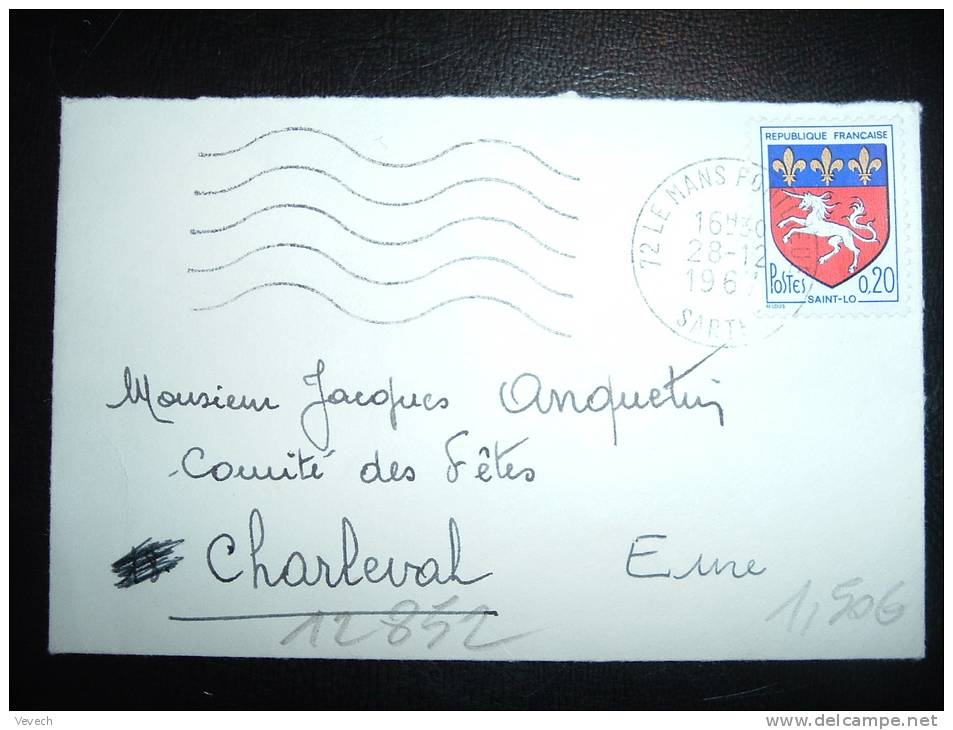 72 LE MANS
16H30
28-12
196
SARTHE
REPUBLIQUE FRANÇAISE
POSTES 0,20
SAINT-LO
Monsieur Jacques Anquetin
Comité des Fêtes
Charleval Eure
12852
1,50€
Vevech
www.delcampe.net